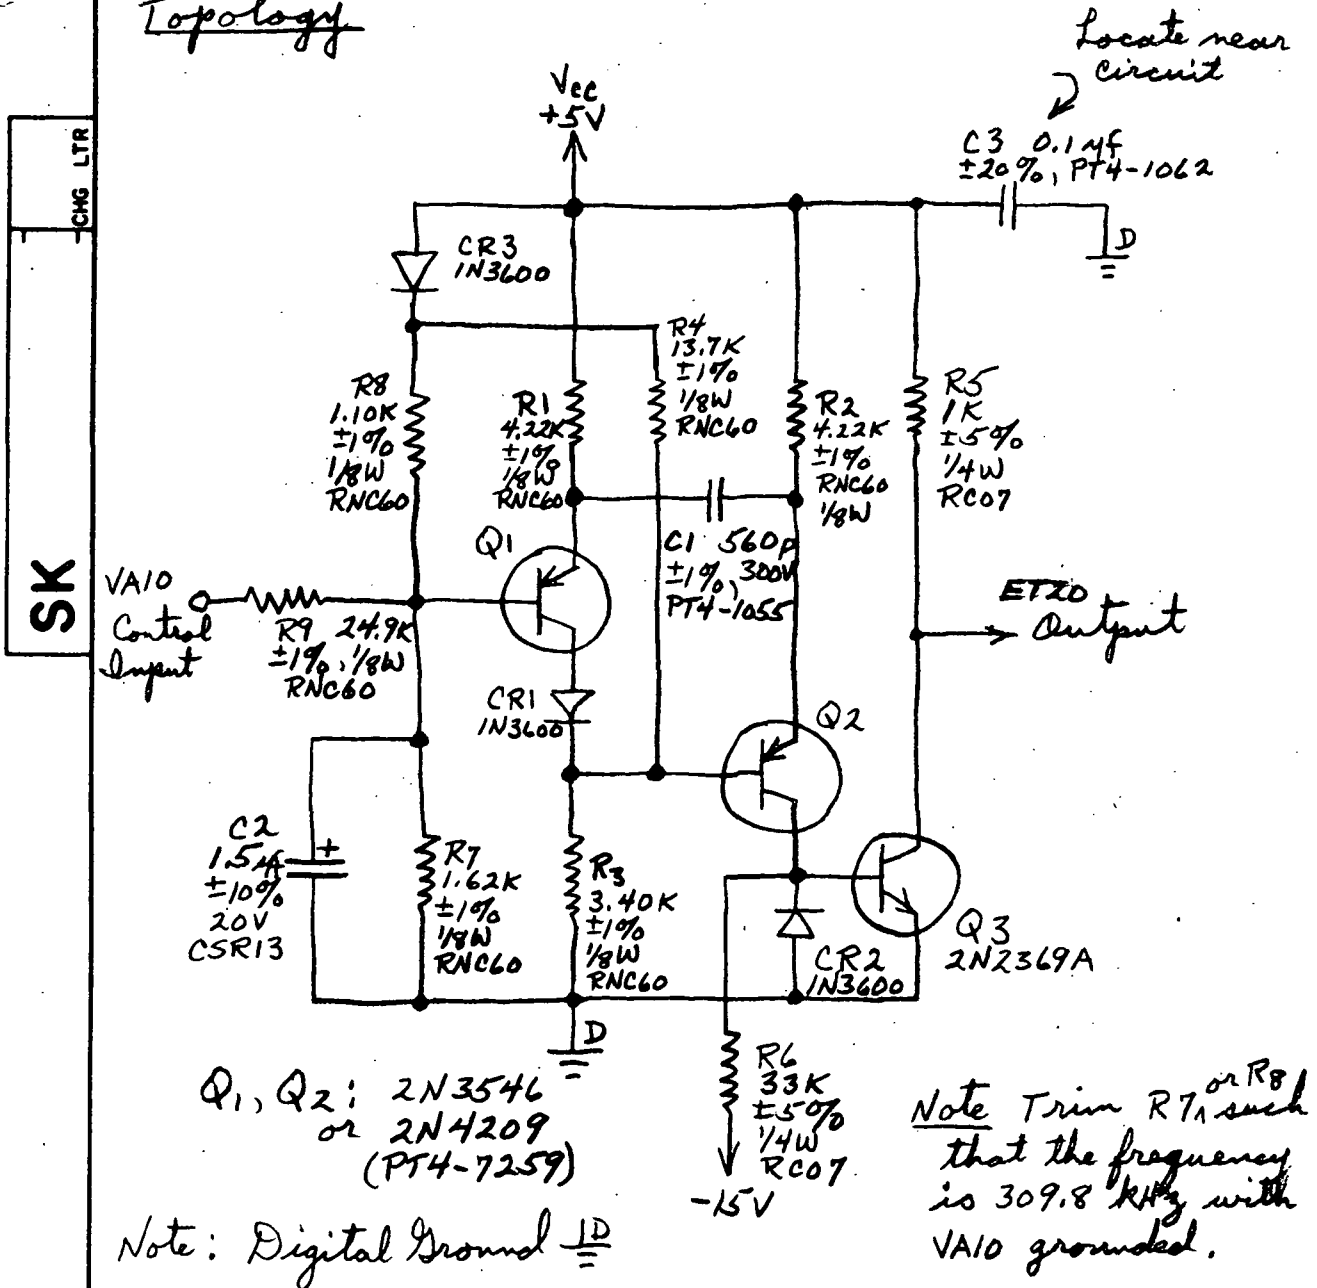 Topology
Locate near
circuit
Vcc
+5V
C3 0.1 μf
±20%, PT4-1062
D
CHG LTR
SK
CR3
1N3600
R8
1.10K
±1%
1/8W
RNC60
R1
4.22K
±1%
1/8W
RNC60
R4
13.7K
±1%
1/8W
RNC60
R2
4.22K
±1%
RNC60
1/8W
R5
1K
±5%
1/4W
RC07
Q1
C1 560p
±1%, 300V
PT4-1055
VA10
Control
Input
R9 24.9K
±1%, 1/8W
RNC60
Output
CR1
1N3600
Q2
C2
1.5
±10%
20V
CSR13
+
R7
1.62K
±1%
1/8W
RNC60
R3
3.40K
±1%
1/8W
RNC60
CR2
1N3600
Q3
2N2369A
D
R6
33K
±5%
1/4W
RC07
-15V
Q1, Q2: 2N3546
or 2N4209
(PT4-7259)
Note Trim R7 or R8 such
that the frequency
is 309.8 kHz with
VA10 grounded.
Note: Digital Ground D